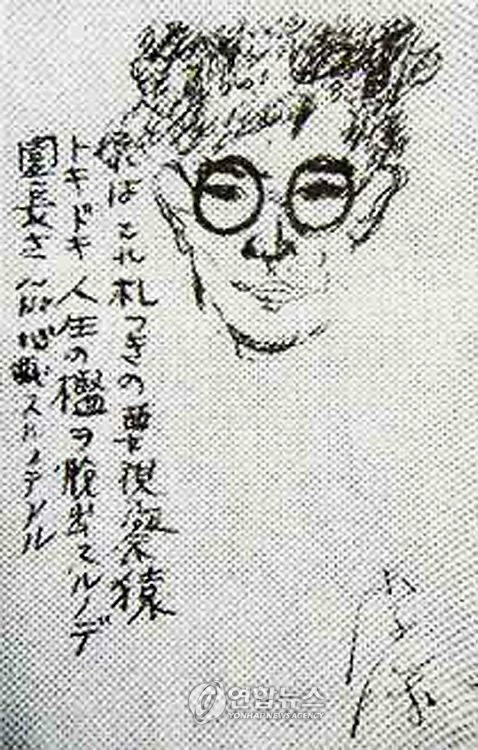 僕はこれ札つきの要視察猿
トキドキ人生の檻ヲ脱出スルノデ
園長さんが心配スルノデアル
연합뉴스
YONHAP NEWS AGENCY